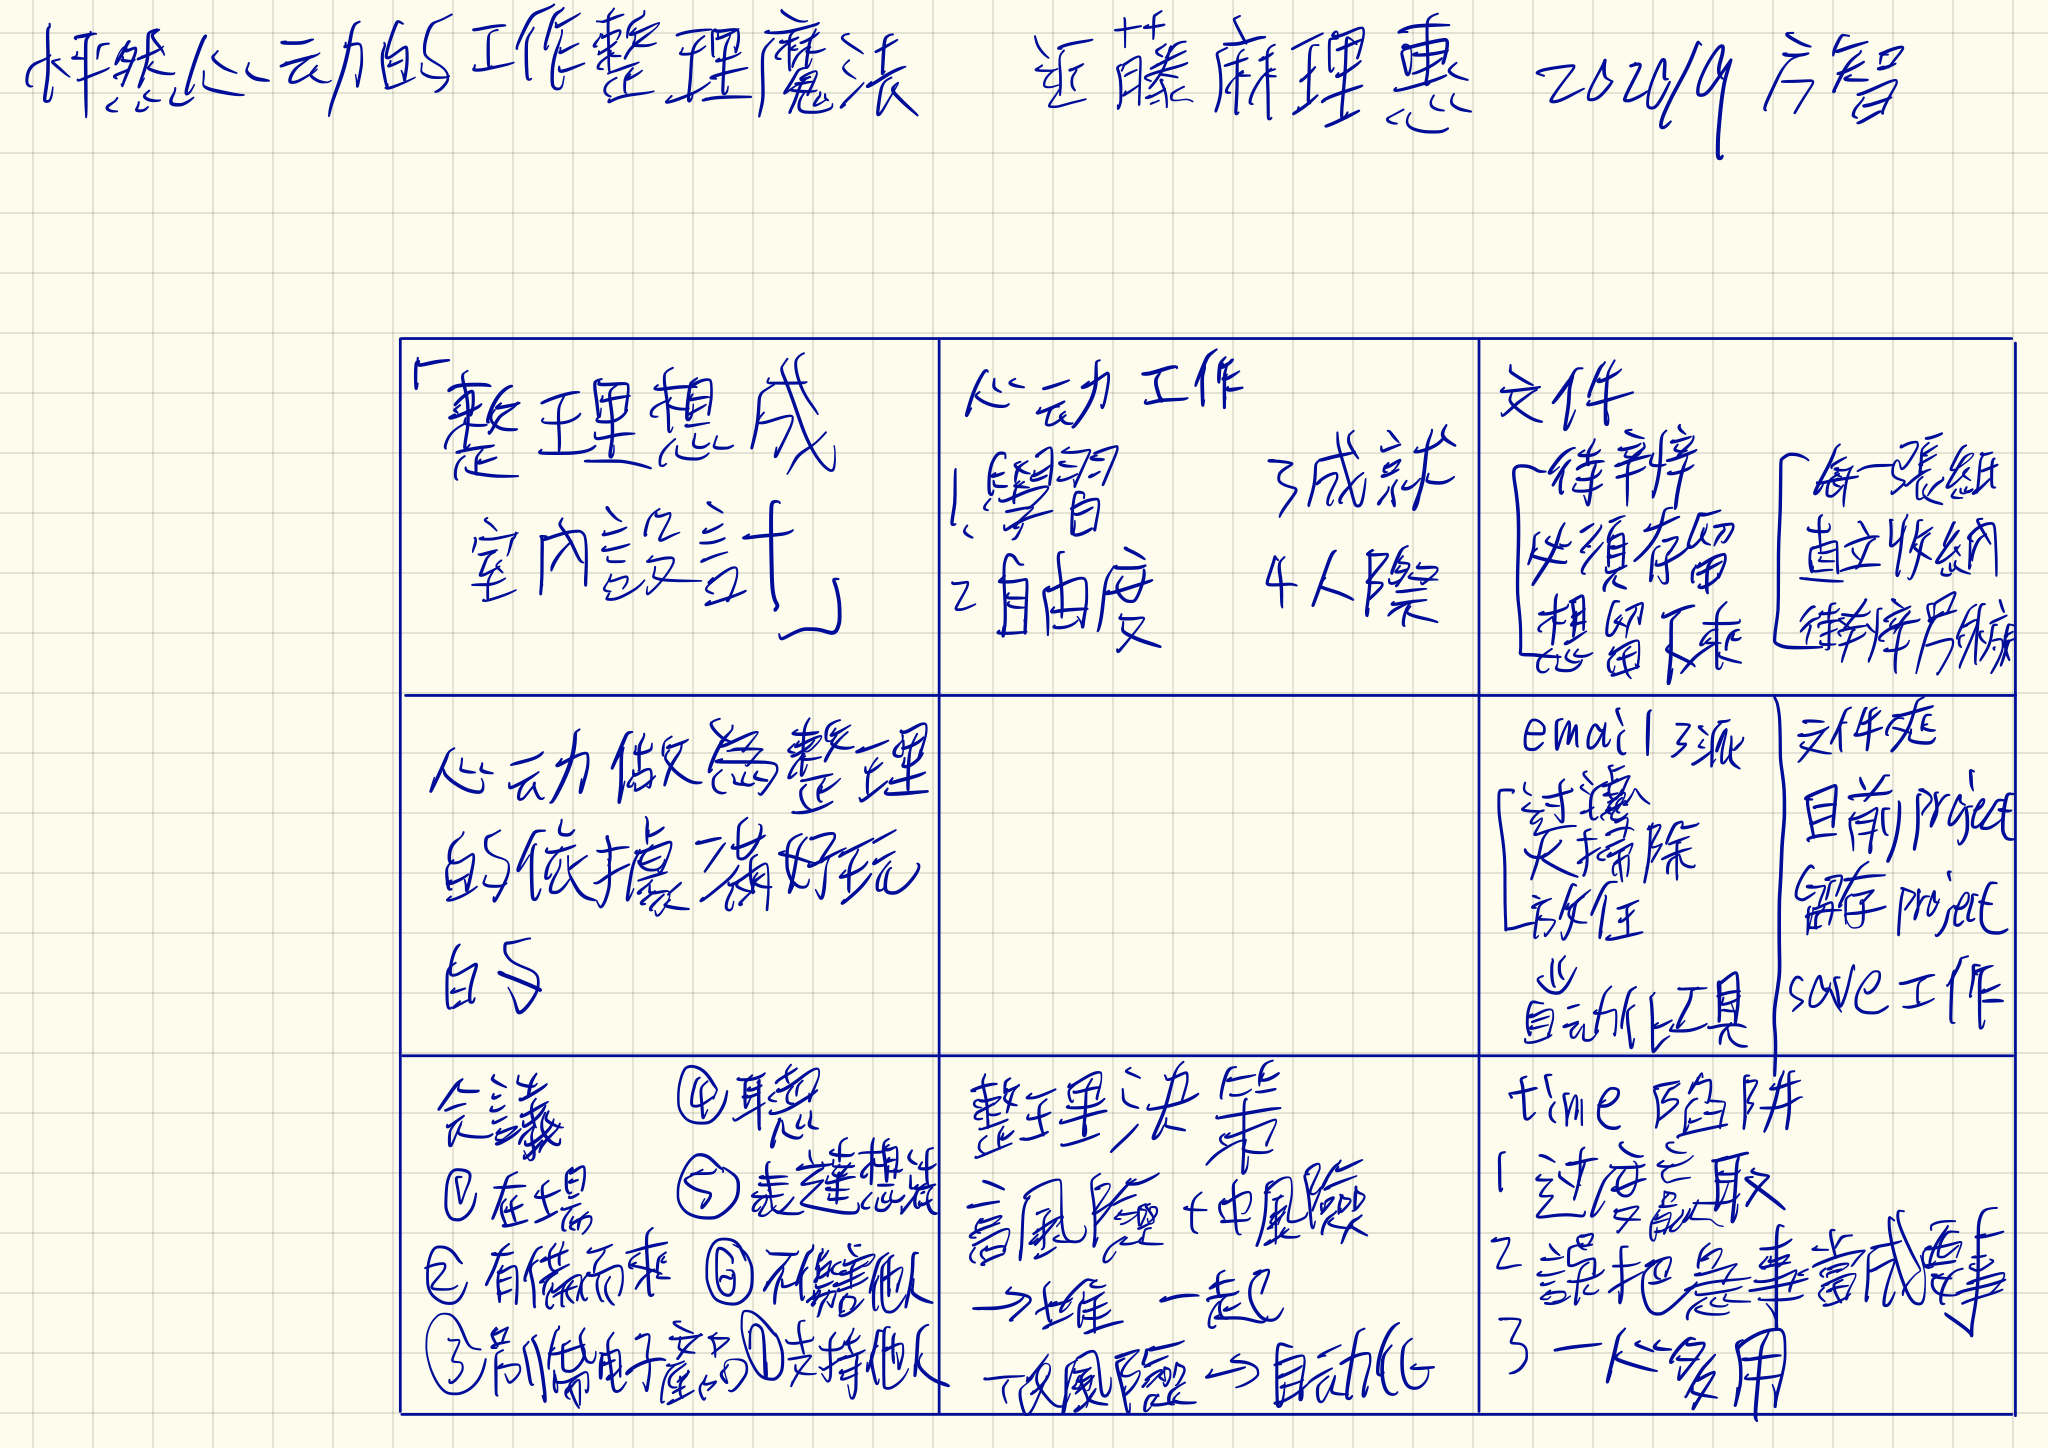 怦然心动的工作整理魔法 近藤麻理惠 2020/9 方智
「整理想成
室內設計」
心动工作
1.學習 3成就
2自由度 4人際
文件
待辦
必須存留
想留下來
每一張紙
直立收納
待辦另
心动做為整理
的依據滿好玩
的
email 3派
过濾
大掃除
放任
自动化工具
文件夾
目前project
留存project
save工作
会議
①在場
②有備而來
③別帶电子產品
④聽
⑤表達想法
⑥不傷害他人
⑦支持他人
整理決策
高風險+中風險
→堆一起
低風險→自动化
time陷阱
1 过度 取
2 誤把急事當成要事
3 一心多用